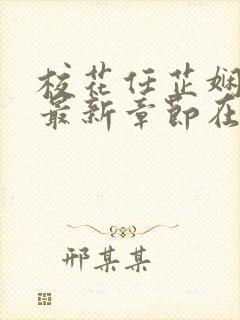 校花任芷娴
最新章节在
邢某某